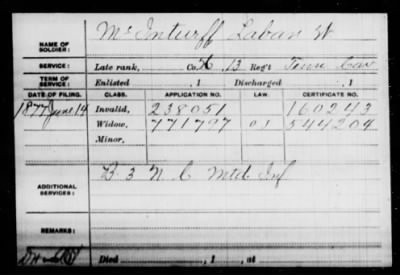 McInturff Laban W
NAME OF SOLDIER:
SERVICE: Late rank, Co. K, 13 Reg't Tenn Cav
TERM OF SERVICE: Enlisted , 1 Discharged , 1
DATE OF FILING. CLASS. APPLICATION NO. LAW. CERTIFICATE NO.
1877 June 14 Invalid, 238051 160243
Widow, 771797 544204
Minor,
B 3 N C Mtd Inf
ADDITIONAL SERVICES:
REMARKS:
Died , 1